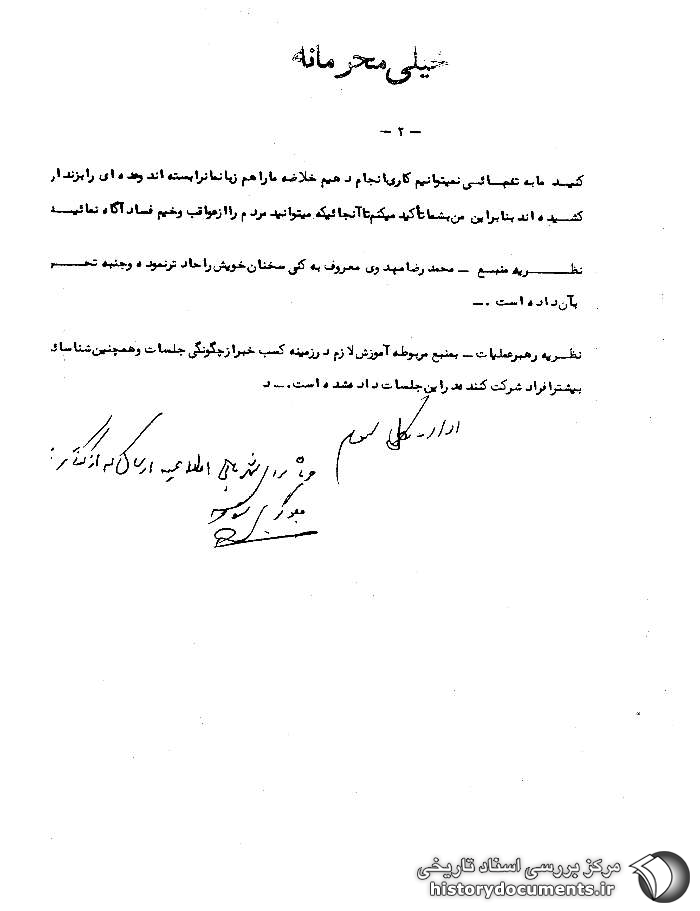 خیلی محرمانه
— ۲ —
کنید ما به تنهائی نمیتوانیم کاری انجام دهیم خلاصه ما را هم زبانمان را بسته اند وعده ای را بزندان
کشیده اند بنابراین من بشما تأکید میکنم تا آنجائیکه میتوانید مردم را از عواقب وخیم فساد آگاه نمائید
نظریه منبع — محمد رضا مهدوی معروف به کنی سخنان خویش را حاد تر نموده وجنبه تحر
بآن داده است .—
نظریه رهبر عملیات — بمنبع مربوطه آموزش لازم در زمینه کسب خبر از چگونگی جلسات وهمچنین شناسائی
بیشتر افراد شرکت کننده در این جلسات داده شده است.— د
اداره کل سوم
برای شهربانی اطلاعیه ارسال که از
جلوگیری شود
مرکز بررسی اسناد تاریخی
historydocuments.ir